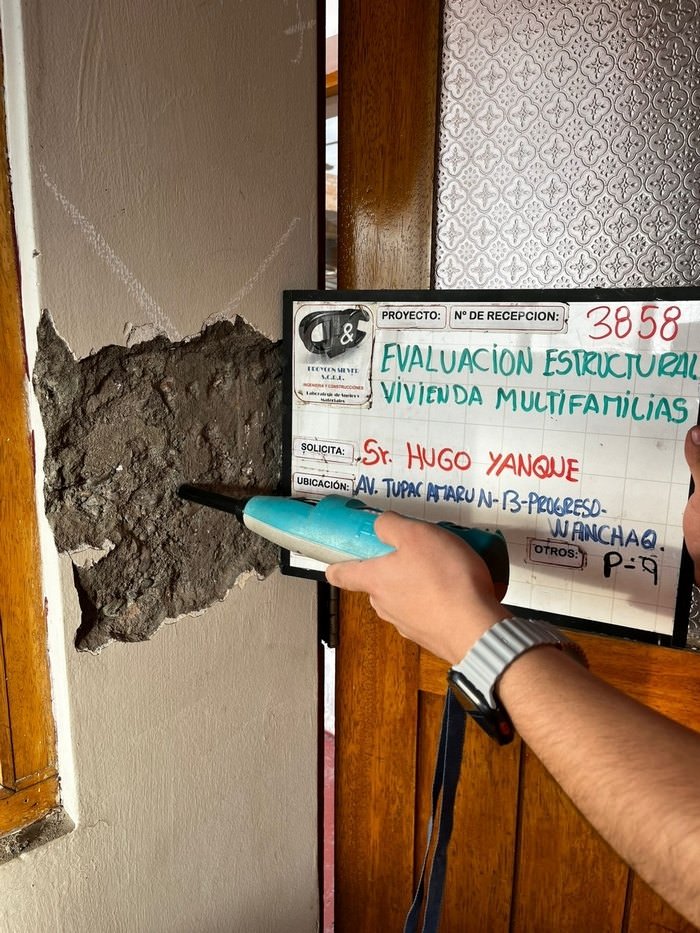 PROYECTO:
Nº DE RECEPCION:
3858
&
PROYCON SILVER
S.C.R.L.
INGENIERIA Y CONSTRUCCIONES
Laboratorio de Suelos y
Materiales
EVALUACION ESTRUCTURAL
VIVIENDA MULTIFAMILIAS
SOLICITA:
Sr. HUGO YANQUE
UBICACIÓN:
AV. TUPAC AMARU N-13-PROGRESO-
WANCHAQ.
OTROS:
P-9